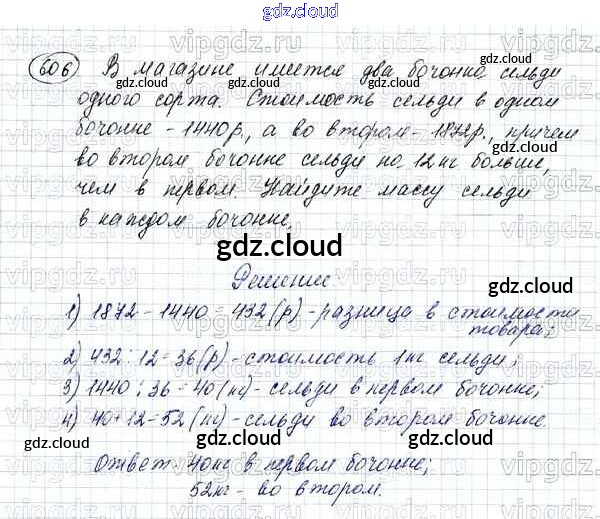 gdz.cloud
606 В магазине имеется два бочонка сельди
одного сорта. Стоимость сельди в одном
бочонке - 1440 р., а во втором - 1872 р., причем
во втором бочонке сельди на 12 кг больше,
чем в первом. Найдите массу сельди
в каждом бочонке.
gdz.cloud
Решение
1) 1872 - 1440 = 432 (р) - разница в стоимости
товара;
2) 432 : 12 = 36 (р) - стоимость 1 кг сельди;
3) 1440 : 36 = 40 (кг) - сельди в первом бочонке;
4) 40 + 12 = 52 (кг) - сельди во втором бочонке.
gdz.cloud gdz.cloud gdz.cloud
Ответ: 40 кг в первом бочонке;
52 кг - во втором.